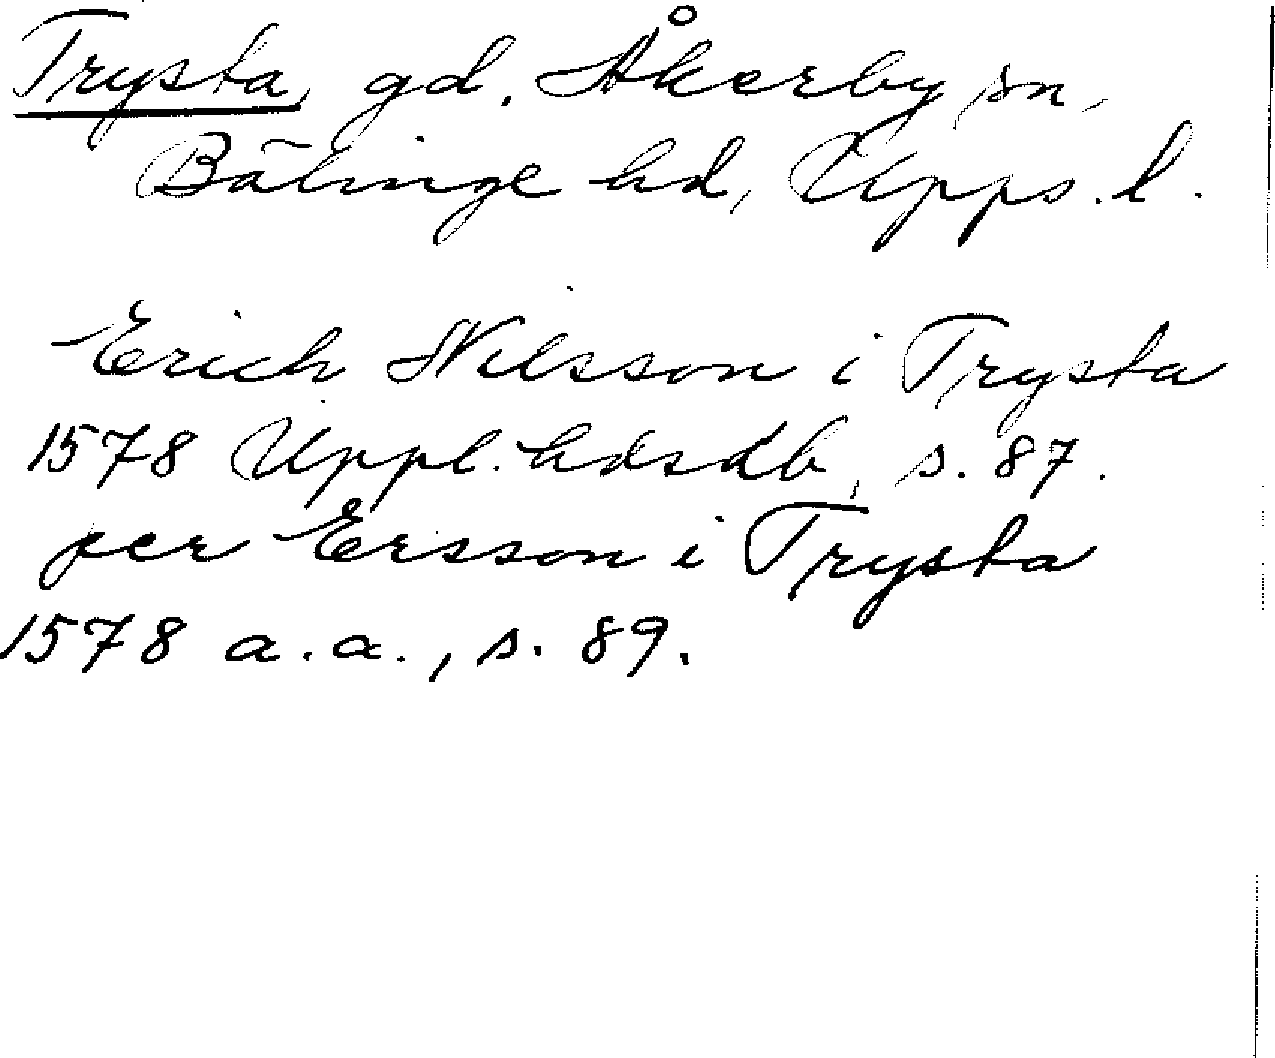 Trysta, gd. Åkerby sn,
Bälinge hd, Upps. l.
Erich Nilsson i Trysta
1578 Uppl. hdsdb, s. 87.
per Ersson i Trysta
1578 a.a., s. 89.